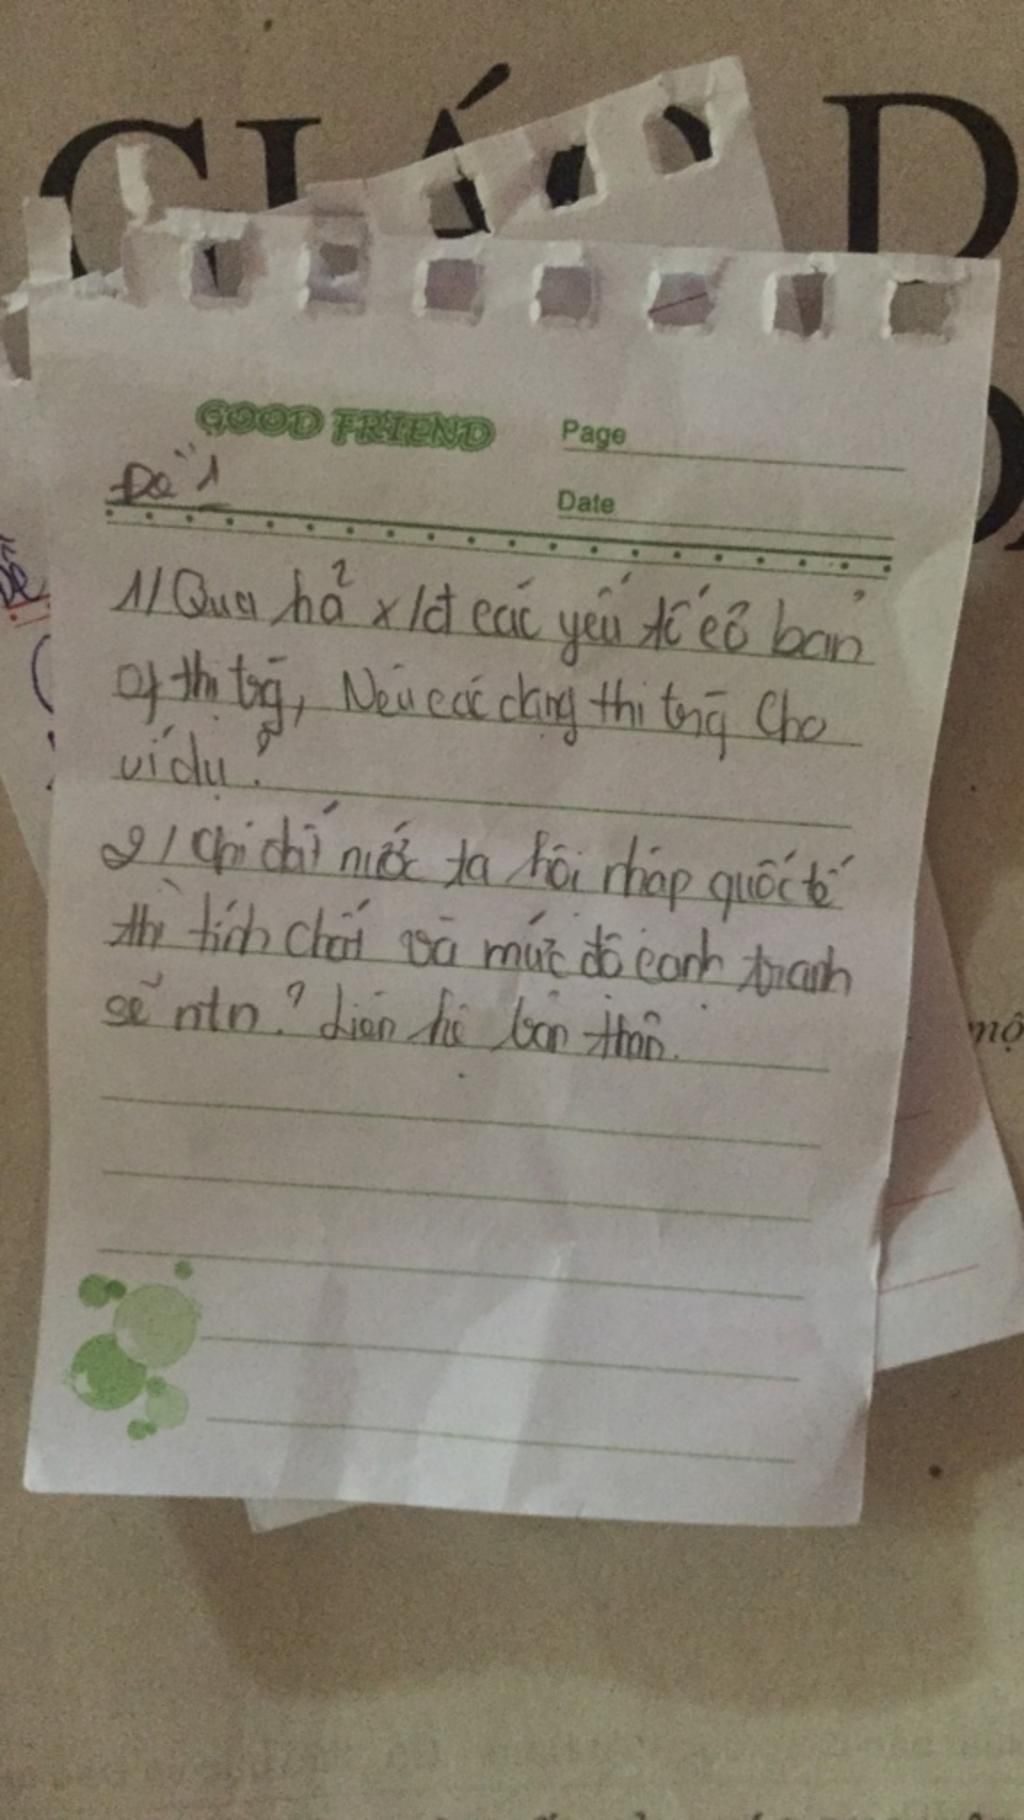 GIÁO D
GOOD FRIEND
Page
Đề 1
Date
1/ Qua hả x/đ các yếu tố cơ bản
of thị trg, Nêu các dạng thị trg Cho
ví dụ?
2/ Chi chí nước ta hội nhập quốc tế
thì tính chất và mức độ canh tranh
sẽ ntn? Liên hệ bản thân.
mộ